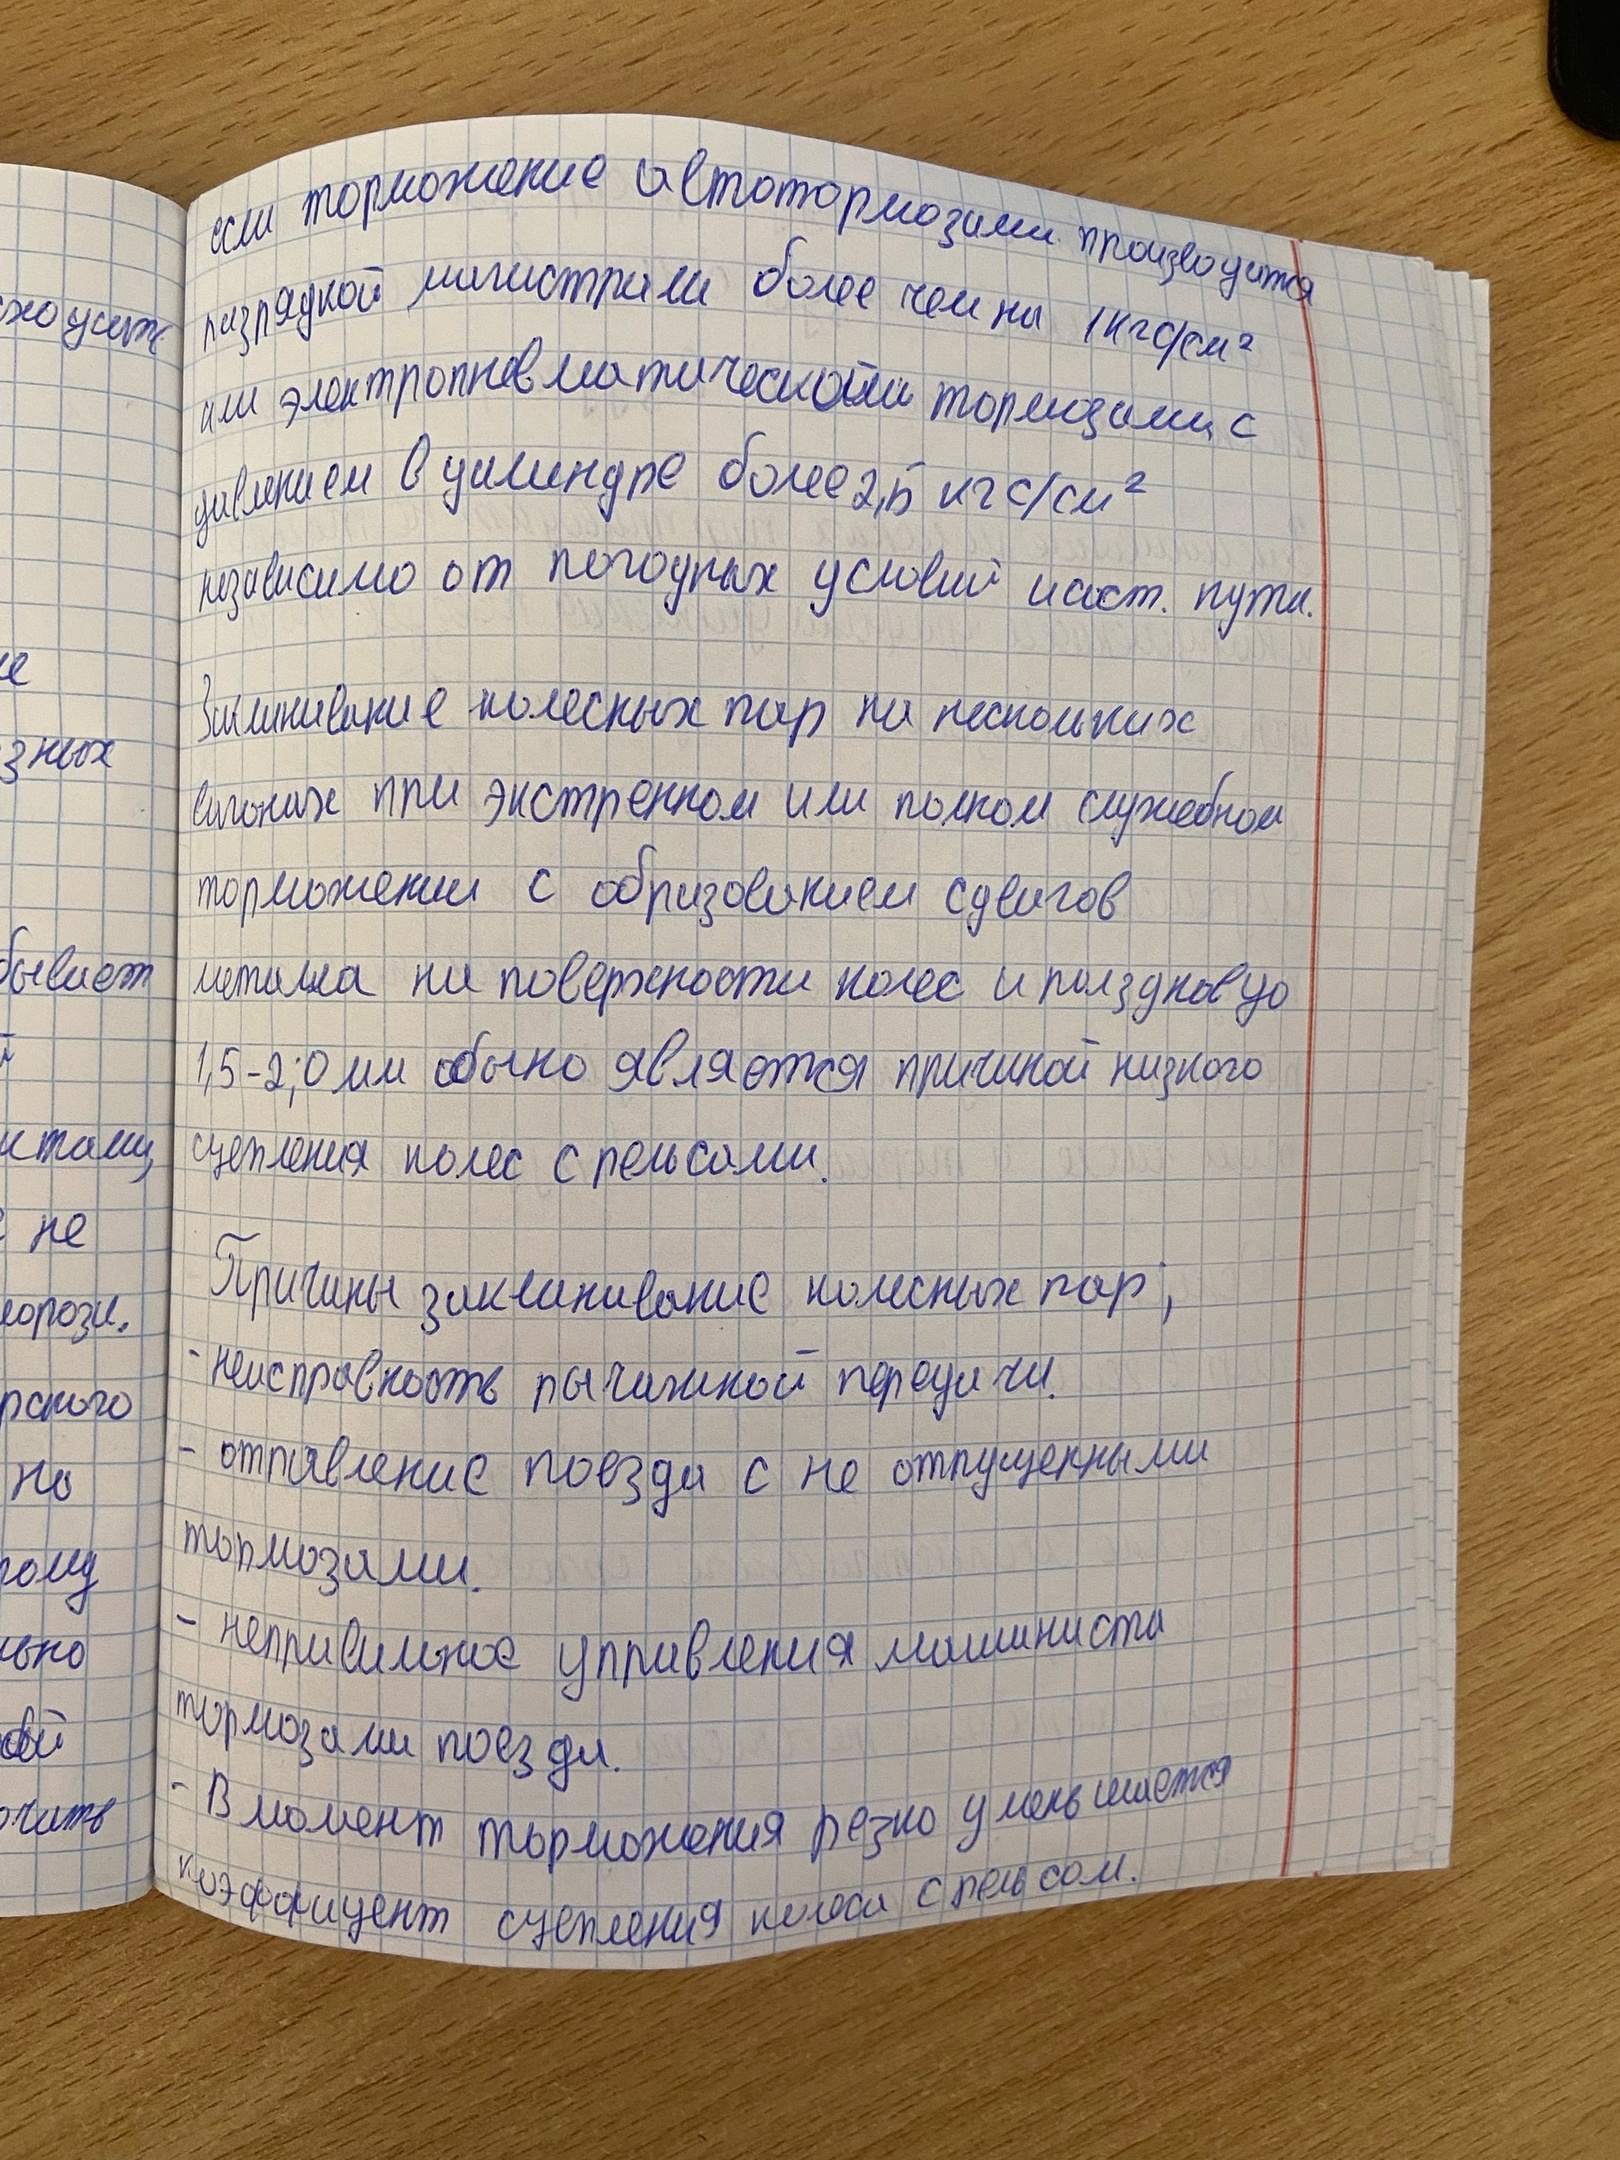 если торможение автотормозами производится
разрядкой магистрали более чем на 1 кгс/см²
или электропневматической тормозами с
давлением в цилиндре более 2,5 кгс/см²
независимо от погодных условий и сост. пути.
Заклинивание колесных пар на нескольких
вагонах при экстренном или полном служебном
торможении с образованием сдвигов
металла на поверхности колес и
1,5-2,0 мм обычно является причиной низкого
сцепления колес с рельсами.
Причины заклинивание колесных пар;
- неисправность рычажной передачи.
- отправление поезда с не отпущенными
тормозами.
- неправильное управления машиниста
тормозами поезда.
- В момент торможения резко уменьшается
коэффицент сцепления колеса с рельсом.
е
зных
бывает
й
не
рского
но